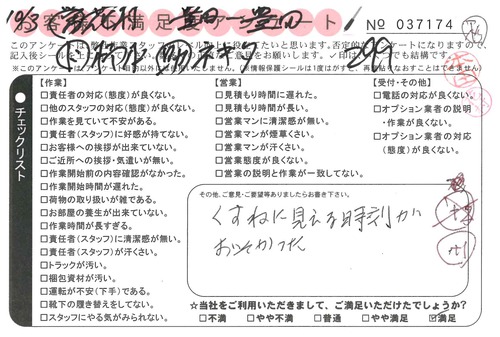 10/3
お客様満足度アンケート
No 037174
このアンケートは
※このアンケートは
チェックリスト
【作業】
□責任者の対応(態度)が良くない。
□他のスタッフの対応(態度)が良くない。
□作業を見ていて不安がある。
□責任者(スタッフ)に好感が持てない。
□お客様への挨拶が出来ていない。
□ご近所への挨拶・気遣いが無い。
□作業開始前の内容確認がなかった。
□作業開始時間が遅れた。
□荷物の取り扱いが雑である。
□お部屋の養生が出来ていない。
□作業時間が長すぎる。
□責任者(スタッフ)に清潔感が無い。
□責任者(スタッフ)が汗くさい。
□トラックが汚い。
□梱包資材が汚い。
□運転が不安(下手)である。
□靴下の履き替えをしてない。
□スタッフにやる気がみられない。
【営業】
□見積もり時間に遅れた。
□見積もり時間が長い。
□営業マンに清潔感が無い。
□営業マンが煙草くさい。
□営業マンが汗くさい。
□営業態度が良くない。
□営業の説明と作業が一致してない。
【受付・その他】
□電話の対応が良くない。
□オプション業者の説明
・作業が良くない。
□オプション業者の対応
(態度)が良くない。
その他、ご意見・ご要望等ありましたらお書き下さい。
に見える時刻が
おそかった
☆当社をご利用いただきまして、ご満足いただけたでしょうか?
□不満 □やや不満 □普通 □やや満足 ☑満足